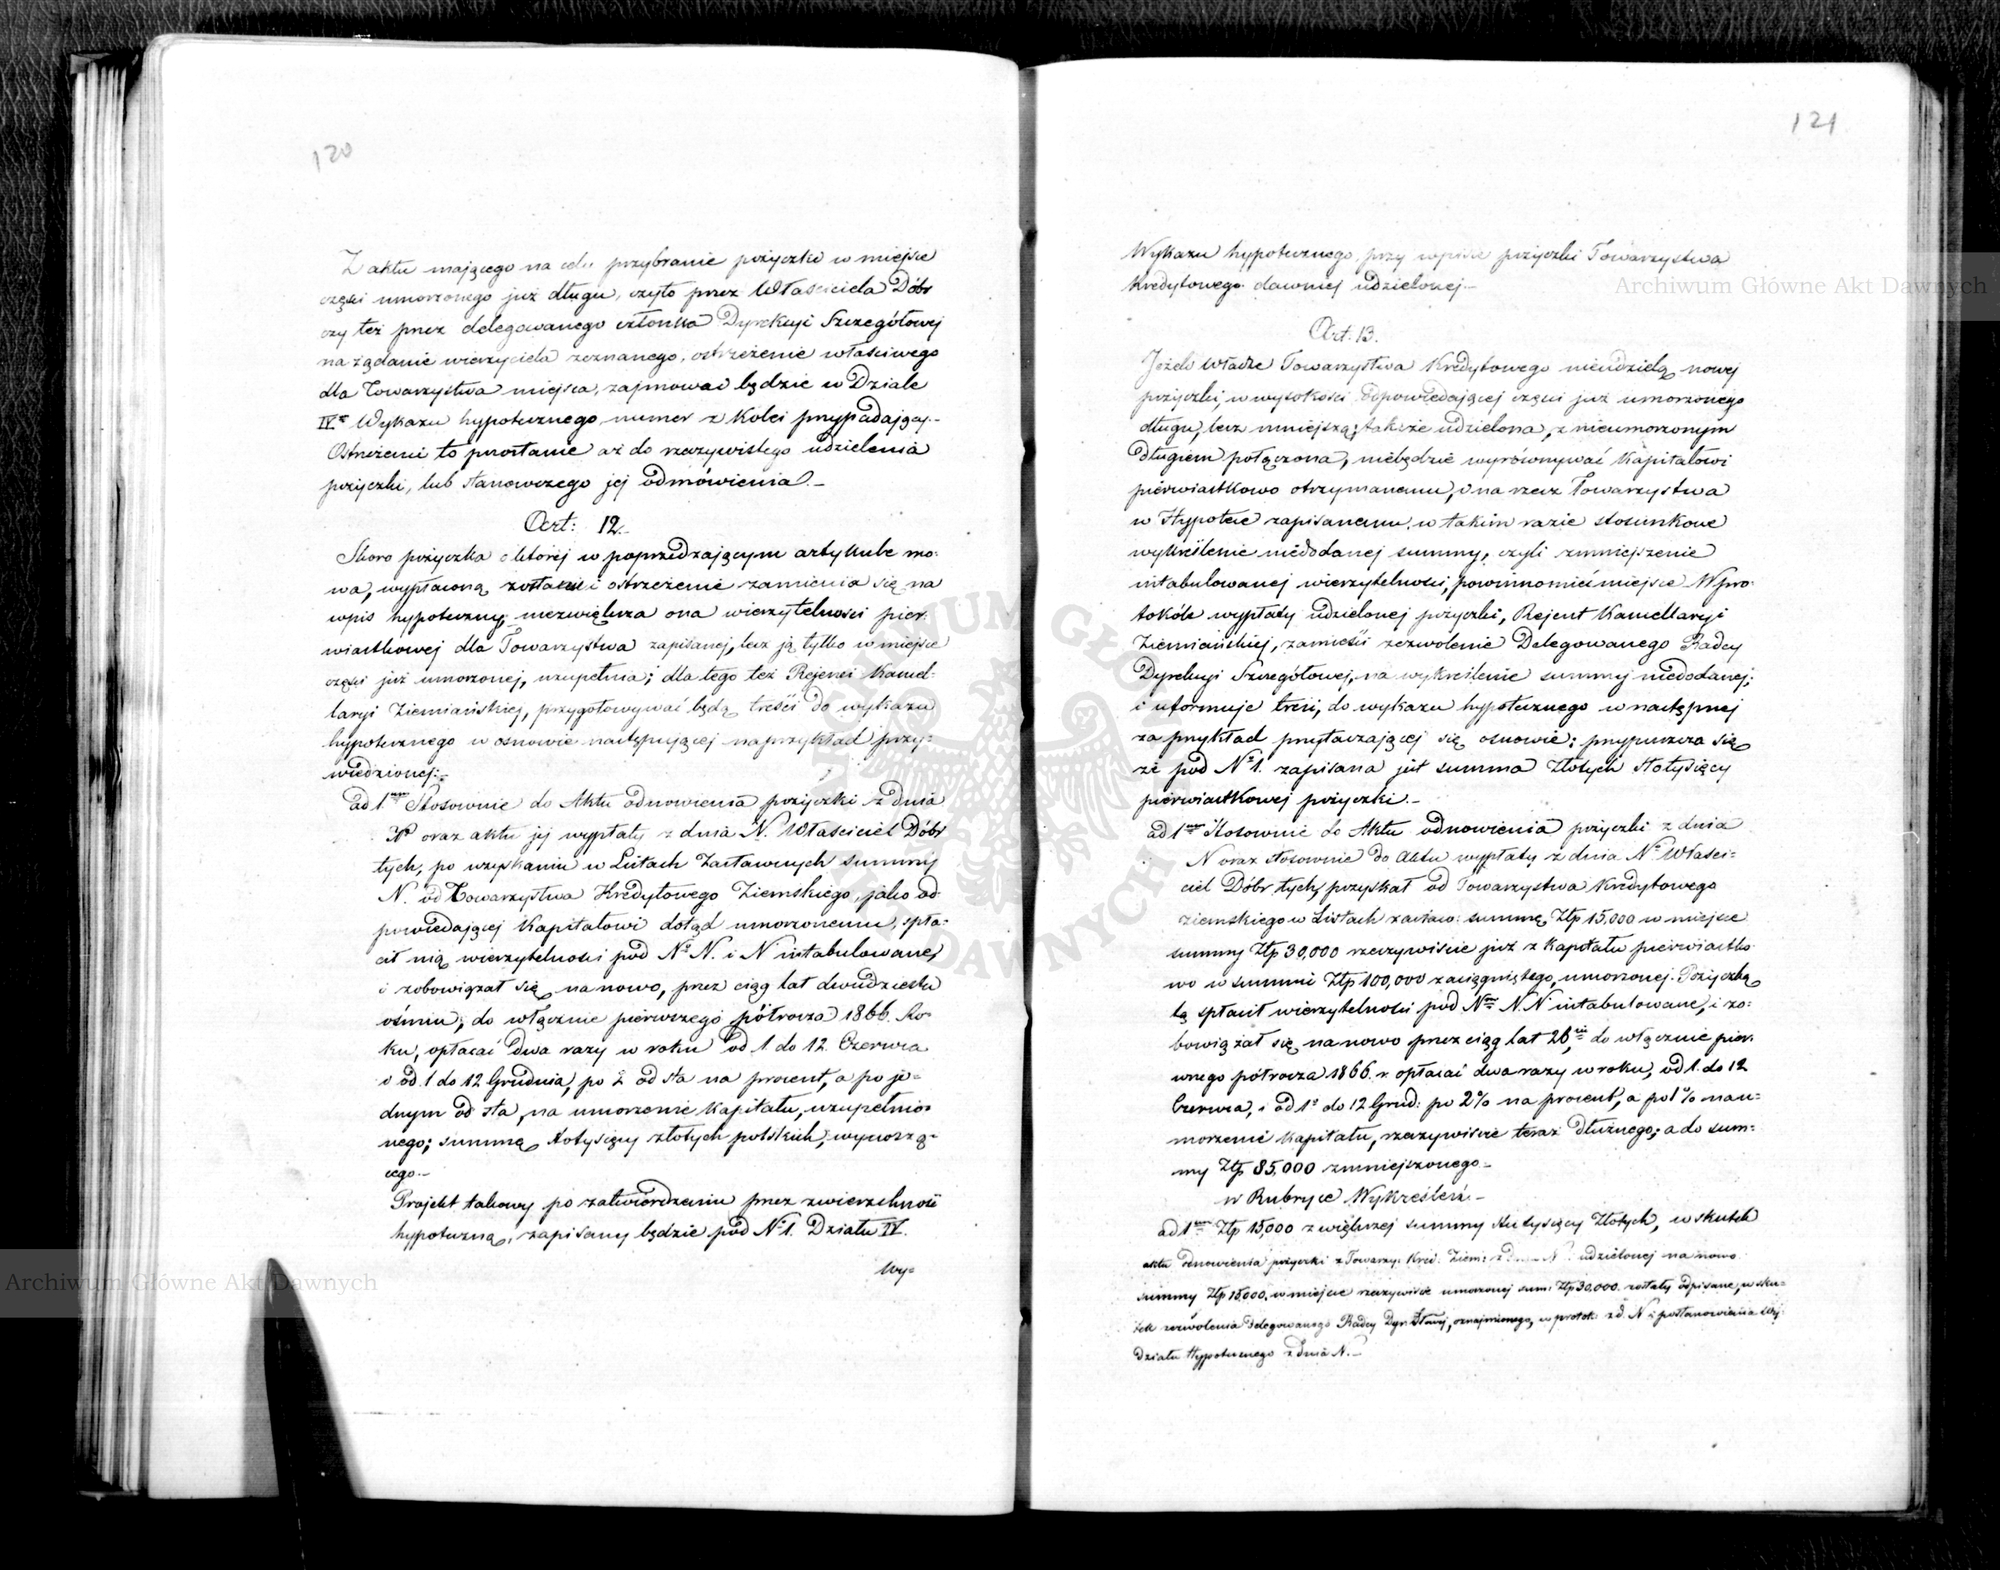 120
Z aktu mającego na celu przybranie pożyczki w miejsce
części umorzonego już długu, czyto przez Właściciela Dóbr
czy też przez delegowanego członka Dyrekcyi Szczegółowej
na żądanie wierzyciela zeznanego, ostrzeżenie właściwego
dla Towarzystwa miejsca, zajmować będzie w Dziale
IVm Wykazu hypotecznego numer z kolei przypadający.-
Ostrzeżenie to pozostanie aż do rzeczywistego udzielenia
pożyczki, lub stanowczego jej odmówienia.-
Art: 12.
Skoro pożyczka o której w poprzedzającym artykule mo-
wa, wypłaconą zostanie i ostrzeżenie zamienia się na
wpis hypoteczny, niezwiększa ona wierzytelności pier-
wiastkowej dla Towarzystwa zapisanej, lecz ją tylko w miejsce
części już umorzonej, uzupełnia; dla tego też Rejenci Kancel-
laryi Ziemiańskiej, przygotowywać będą treści do wykazu
hypotecznego w osnowie następującej naprzykład przy-
wiedzionej:-
ad 1mum Stosownie do Aktu odnowienia pożyczki z dnia
N oraz aktu jej wypłaty z dnia N. Właściciel Dóbr
tych, po uzyskaniu w Listach Zastawnych summy
N. od Towarzystwa Kredytowego Ziemskiego, jako od-
powiedającej Kapitałowi dotąd umorzonemu, spła-
cił nią wierzytelności pod No N. i N intabulowane,
i zobowiązał się na nowo, przez ciąg lat dwudziestu
ośmiu, do włącznie pierwszego półrocza 1866. Ro-
ku, opłacać dwa razy w roku od 1 do 12 Czerwca
i od 1 do 12 Grudnia, po 2 od sta na procent, a po je-
dnym od sta, na umorzenie Kapitału, uzupełnio-
nego; summę stotysięcy złotych polskich, wynoszą-
cego.-
Projekt takowy po zatwierdzeniu przez zwierzchność
hypoteczną, zapisany będzie pod No 1. Działu IV.
Wy-
121
Wykazu hypotecznego, przy wpisie pożyczki Towarzystwa
Kredytowego dawniej udzielonej.-
Art: 13.
Jeżeli Władze Towarzystwa Kredytowego nieudzielą nowej
pożyczki, w wysokości odpowiedającej części już umorzonego
długu, lecz mniejszą; takoż udzielona, z nieumorzonym
długiem połączona, niebędzie wyrównywać Kapitałowi
pierwiastkowo otrzymanemu, i na rzecz Towarzystwa
w Hypotece zapisanemu, w takim razie stosunkowe
wykreślenie niedodanej summy, czyli zmniejszenie
intabulowanej wierzytelności, powinno mieć miejsce. W pro-
tokóle wypłaty udzielonej pożyczki, Rejent Kancellaryi
Ziemiańskiej, zamieści zezwolenie Delegowanego Radcy
Dyrekcyi Szczegółowej, na wykreślenie summy niedodanej;
i uformuje treść, do wykazu hypotecznego w następnej
za przykład przytaczającej się osnowie; przypuszcza się
że pod No 1. zapisana jest summa Złotych Stotysięcy
pierwiastkowej pożyczki.-
ad 1mum Stosownie do Aktu odnowienia pożyczki z dnia
N oraz stosownie do Aktu wypłaty z dnia N. Właści-
ciel Dóbr tych, pozyskał od Towarzystwa Kredytowego
ziemskiego w Listach zastaw: summę Złp 15,000 w miejsce
summy Złp 30,000 rzeczywiście już z Kapitału pierwiastko-
wo w summie Złp 100,000 zaciągniętego, umorzonej. Pożyczką
tą spłacił wierzytelności pod Nrem N.N intabulowane, i zo-
bowiązał się na nowo przez ciąg lat 28, do włącznie pier-
wszego półrocza 1866. r. opłacać dwa razy w roku, od 1. do 12
Czerwca, i od 1o do 12 Grud: po 2% na procent, a po 1% na u-
morzenie Kapitału, rzeczywiście teraz dłużnego; a do sum-
my Złp 85,000 zmniejszonego.-
w Rubryce Wykreśleń.-
ad 1mum Złp 15,000 z większej summy stutysięcy Złotych, w skutek
aktu odnowienia pożyczki z Towarzy: Kred: Ziem: z dnia N. udzielonej na nowo
summy Złp 15,000, w miejsce rzeczywiście umorzonej sum: Złp 30,000. zostały odpisane, w sku-
tek zezwolenia delegowanego Radcy Dyr: Szczej, oznajmionego, w protok: z d. N i postanowienia Wy-
działu Hypotecznego z dnia N.-
Archiwum Główne Akt Dawnych
Archiwum Główne Akt Dawnych
ARCHIWUM GŁÓWNE AKT DAWNYCH